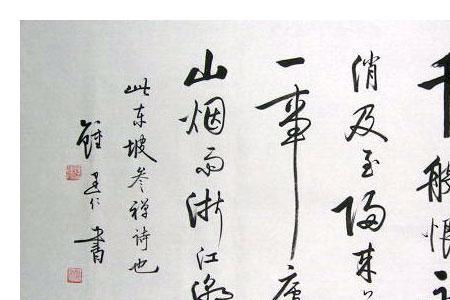 千般恨
消及至歸来
一事廬
山烟雨浙江潮
此东坡参禅詩也
仁書